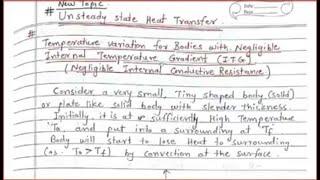 New Topic
# Unsteady state Heat Transfer.
# Temperature variation for Bodies with Negligible
Internal Temperature Gradient (ITG).
(Negligible Internal Conductive Resistance).
Consider a very small, Tiny shaped body (solid)
or plate like solid body with slender thickness.
Initially, it is at sufficiently High Temperature
'To' and put into a surrounding at 'Tf'
Body will start to lose Heat to surrounding
(as To > Tf) by convection at the surface.